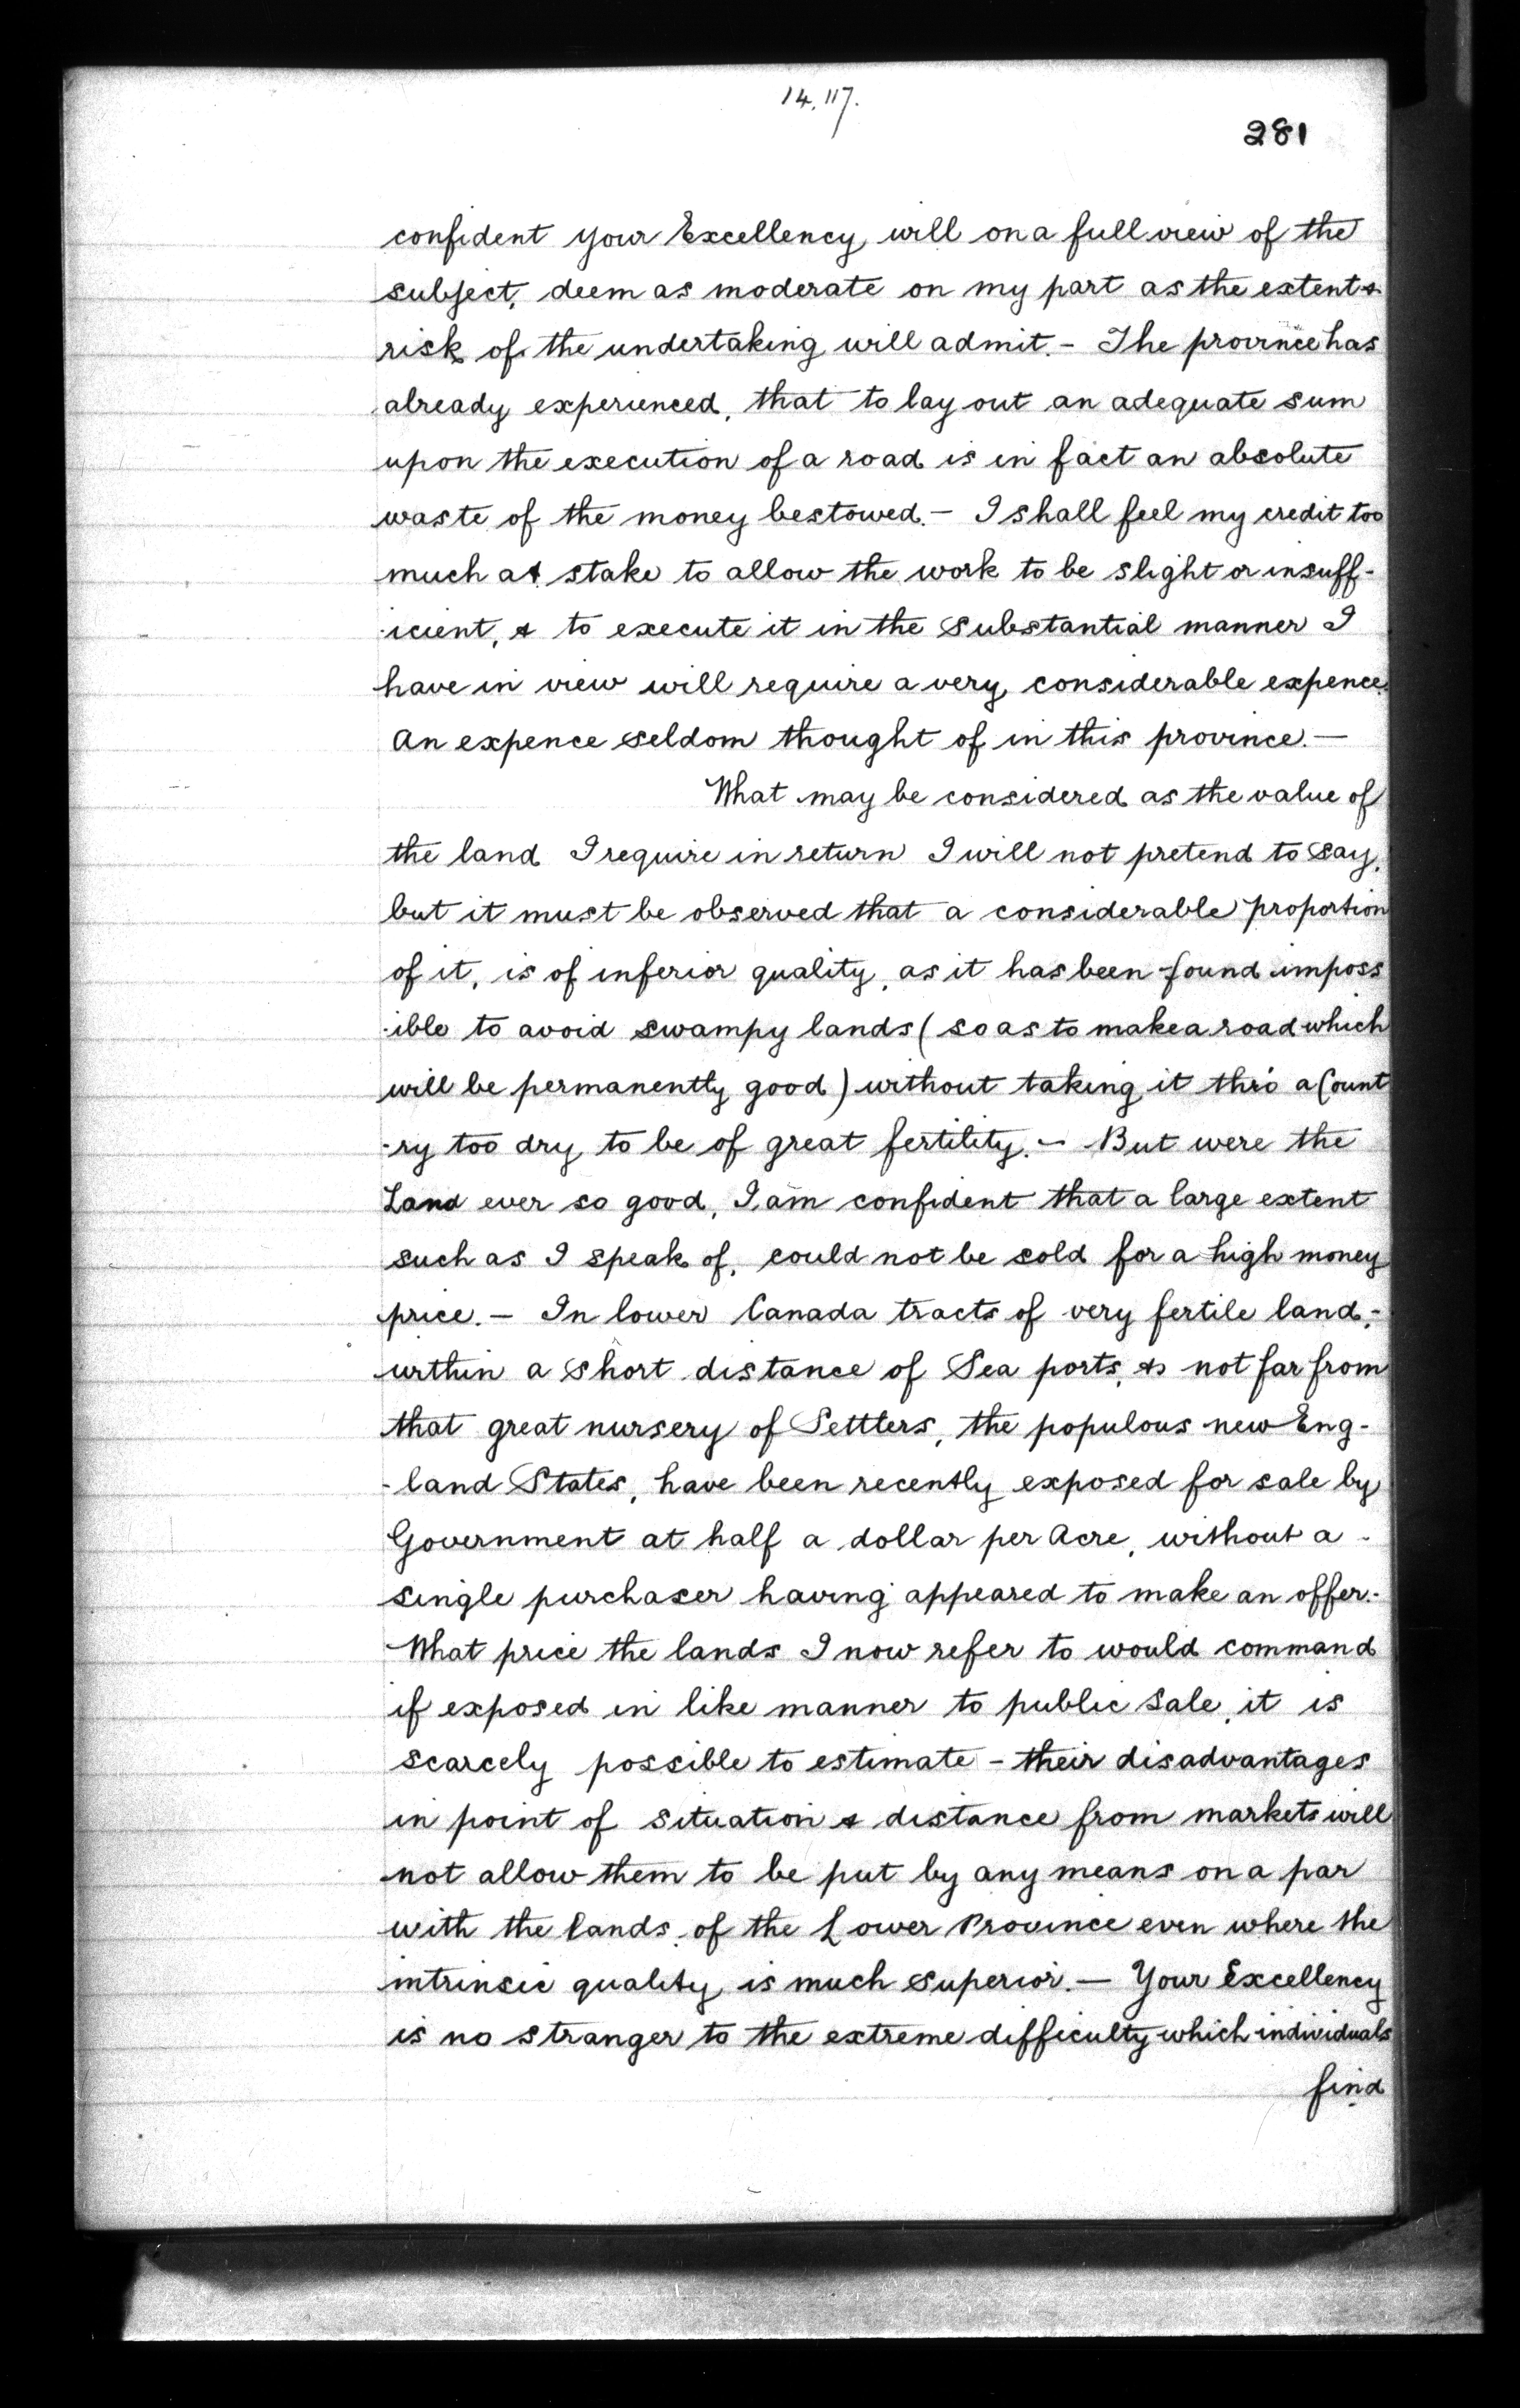 14.117.
281
confident your Excellency will on a full view of the
subject, deem as moderate on my part as the extent &
risk of the undertaking will admit. - The province has
already experienced, that to lay out an adequate sum
upon the execution of a road is in fact an absolute
waste of the money bestowed. - I shall feel my credit too
much at stake to allow the work to be slight or insuff-
-icient, & to execute it in the substantial manner I
have in view will require a very considerable expence.
An expence seldom thought of in this province. —
What may be considered as the value of
the land I require in return I will not pretend to say,
but it must be observed that a considerable proportion
of it, is of inferior quality, as it has been found imposs
-ible to avoid swampy lands (so as to make a road which
will be permanently good) without taking it thro' a Count
-ry too dry to be of great fertility. - But were the
Land ever so good, I am confident that a large extent
such as I speak of, could not be sold for a high money
price. - In lower Canada tracts of very fertile land, -
within a short distance of Sea ports, & not far from
that great nursery of Settlers, the populous new Eng-
-land States, have been recently exposed for sale by
Government at half a dollar per Acre, without a -
single purchaser having appeared to make an offer. -
What price the lands I now refer to would command
if exposed in like manner to public Sale, it is
scarcely possible to estimate - their disadvantages
in point of situation & distance from markets will
not allow them to be put by any means on a par
with the lands of the Lower Province even where the
intrinsic quality is much superior. — Your Excellency
is no stranger to the extreme difficulty which individuals
find